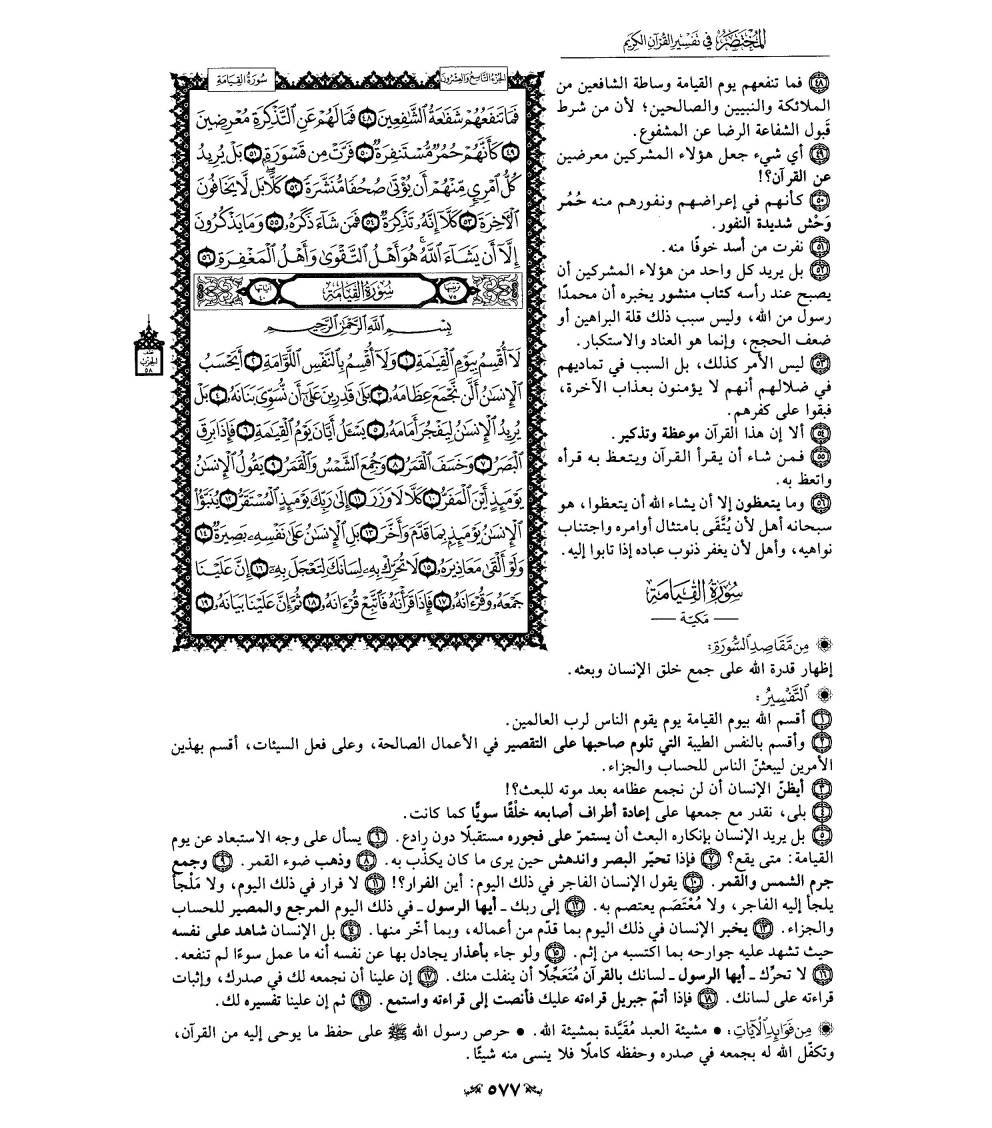 المختصر في تفسير القرآن الكريم
الجزء التاسع والعشرون
سورة القيامة
فَمَا تَنفَعُهُمْ شَفَاعَةُ الشَّافِعِينَ ٤٨ فَمَا لَهُمْ عَنِ التَّذْكِرَةِ مُعْرِضِينَ
٤٩ كَأَنَّهُمْ حُمُرٌ مُّسْتَنفِرَةٌ ٥٠ فَرَّتْ مِن قَسْوَرَةٍ ٥١ بَلْ يُرِيدُ
كُلُّ امْرِئٍ مِّنْهُمْ أَن يُؤْتَىٰ صُحُفًا مُّنَشَّرَةً ٥٢ كَلَّا ۖ بَل لَّا يَخَافُونَ
الْآخِرَةَ ٥٣ كَلَّا إِنَّهُ تَذْكِرَةٌ ٥٤ فَمَن شَاءَ ذَكَرَهُ ٥٥ وَمَا يَذْكُرُونَ
إِلَّا أَن يَشَاءَ اللَّهُ ۚ هُوَ أَهْلُ التَّقْوَىٰ وَأَهْلُ الْمَغْفِرَةِ ٥٦
ترتيبها ٧٥ سُورَةُ الْقِيَامَةِ آياتها ٤٠
بِسْمِ اللَّهِ الرَّحْمَٰنِ الرَّحِيمِ
لَا أُقْسِمُ بِيَوْمِ الْقِيَامَةِ ١ وَلَا أُقْسِمُ بِالنَّفْسِ اللَّوَّامَةِ ٢ أَيَحْسَبُ
الْإِنسَانُ أَلَّن نَّجْمَعَ عِظَامَهُ ٣ بَلَىٰ قَادِرِينَ عَلَىٰ أَن نُّسَوِّيَ بَنَانَهُ ٤ بَلْ
يُرِيدُ الْإِنسَانُ لِيَفْجُرَ أَمَامَهُ ٥ يَسْأَلُ أَيَّانَ يَوْمُ الْقِيَامَةِ ٦ فَإِذَا بَرِقَ
الْبَصَرُ ٧ وَخَسَفَ الْقَمَرُ ٨ وَجُمِعَ الشَّمْسُ وَالْقَمَرُ ٩ يَقُولُ الْإِنسَانُ
يَوْمَئِذٍ أَيْنَ الْمَفَرُّ ١٠ كَلَّا لَا وَزَرَ ١١ إِلَىٰ رَبِّكَ يَوْمَئِذٍ الْمُسْتَقَرُّ ١٢ يُنَبَّأُ
الْإِنسَانُ يَوْمَئِذٍ بِمَا قَدَّمَ وَأَخَّرَ ١٣ بَلِ الْإِنسَانُ عَلَىٰ نَفْسِهِ بَصِيرَةٌ ١٤
وَلَوْ أَلْقَىٰ مَعَاذِيرَهُ ١٥ لَا تُحَرِّكْ بِهِ لِسَانَكَ لِتَعْجَلَ بِهِ ١٦ إِنَّ عَلَيْنَا
جَمْعَهُ وَقُرْآنَهُ ١٧ فَإِذَا قَرَأْنَاهُ فَاتَّبِعْ قُرْآنَهُ ١٨ ثُمَّ إِنَّ عَلَيْنَا بَيَانَهُ ١٩
الحزب
٥٨
٤٨ فما تنفعهم يوم القيامة وساطة الشافعين من
الملائكة والنبيين والصالحين؛ لأن من شرط
قَبول الشفاعة الرضا عن المشفوع.
٤٩ أي شيء جعل هؤلاء المشركين معرضين
عن القرآن؟!
٥٠ كأنهم في إعراضهم ونفورهم منه حُمُر
وَحْش شديدة النفور.
٥١ نفرت من أسد خوفًا منه.
٥٢ بل يريد كل واحد من هؤلاء المشركين أن
يصبح عند رأسه كتاب منشور يخبره أن محمدًا
رسول من الله، وليس سبب ذلك قلة البراهين أو
ضعف الحجج، وإنما هو العناد والاستكبار.
٥٣ ليس الأمر كذلك، بل السبب في تماديهم
في ضلالهم أنهم لا يؤمنون بعذاب الآخرة،
فبقوا على كفرهم.
٥٤ ألا إن هذا القرآن موعظة وتذكير.
٥٥ فمن شاء أن يقرأ القرآن ويتعظ به قرأه
واتعظ به.
٥٦ وما يتعظون إلا أن يشاء الله أن يتعظوا، هو
سبحانه أهل لأن يُتَّقَى بامتثال أوامره واجتناب
نواهيه، وأهل لأن يغفر ذنوب عباده إذا تابوا إليه.
سُورَةُ الْقِيَامَةِ
— مكية —
من مقاصد السورة:
إظهار قدرة الله على جمع خلق الإنسان وبعثه.
التفسير:
١ أقسم الله بيوم القيامة يوم يقوم الناس لرب العالمين.
٢ وأقسم بالنفس الطيبة التي تلوم صاحبها على التقصير في الأعمال الصالحة، وعلى فعل السيئات، أقسم بهذين
الأمرين ليبعثنّ الناس للحساب والجزاء.
٣ أيظنّ الإنسان أن لن نجمع عظامه بعد موته للبعث؟!
٤ بلى، نقدر مع جمعها على إعادة أطراف أصابعه خلْقًا سويًّا كما كانت.
٥ بل يريد الإنسان بإنكاره البعث أن يستمرّ على فجوره مستقبلًا دون رادع. ٦ يسأل على وجه الاستبعاد عن يوم
القيامة: متى يقع؟ ٧ فإذا تحيّر البصر واندهش حين يرى ما كان يكذّب به. ٨ وذهب ضوء القمر. ٩ وجمع
جرم الشمس والقمر. ١٠ يقول الإنسان الفاجر في ذلك اليوم: أين الفرار؟! ١١ لا فرار في ذلك اليوم، ولا مَلْجأ
يلجأ إليه الفاجر، ولا مُعْتَصَم يعتصم به. ١٢ إلى ربك ـ أيها الرسول ـ في ذلك اليوم المرجع والمصير للحساب
والجزاء. ١٣ يخبر الإنسان في ذلك اليوم بما قدّم من أعماله، وبما أخّر منها. ١٤ بل الإنسان شاهد على نفسه
حيث تشهد عليه جوارحه بما اكتسبه من إثم. ١٥ ولو جاء بأعذار يجادل بها عن نفسه أنه ما عمل سوءًا لم تنفعه.
١٦ لا تحرّك ـ أيها الرسول ـ لسانك بالقرآن مُتَعَجِّلًا أن ينفلت منك. ١٧ إن علينا أن نجمعه لك في صدرك، وإثبات
قراءته على لسانك. ١٨ فإذا أتمّ جبريل قراءته عليك فأنصت إلى قراءته واستمع. ١٩ ثم إن علينا تفسيره لك.
من فوائد الآيات: • مشيئة العبد مُقَيَّدة بمشيئة الله. • حرص رسول الله ﷺ على حفظ ما يوحى إليه من القرآن،
وتكفّل الله له بجمعه في صدره وحفظه كاملًا فلا ينسى منه شيئًا.
٥٧٧